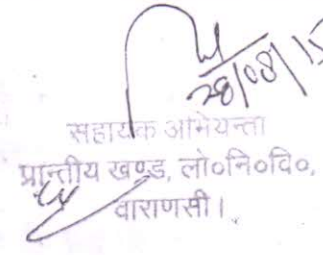 28/08/15
सहायक अभियन्ता
प्रान्तीय खण्ड, लो०नि०वि०,
वाराणसी।